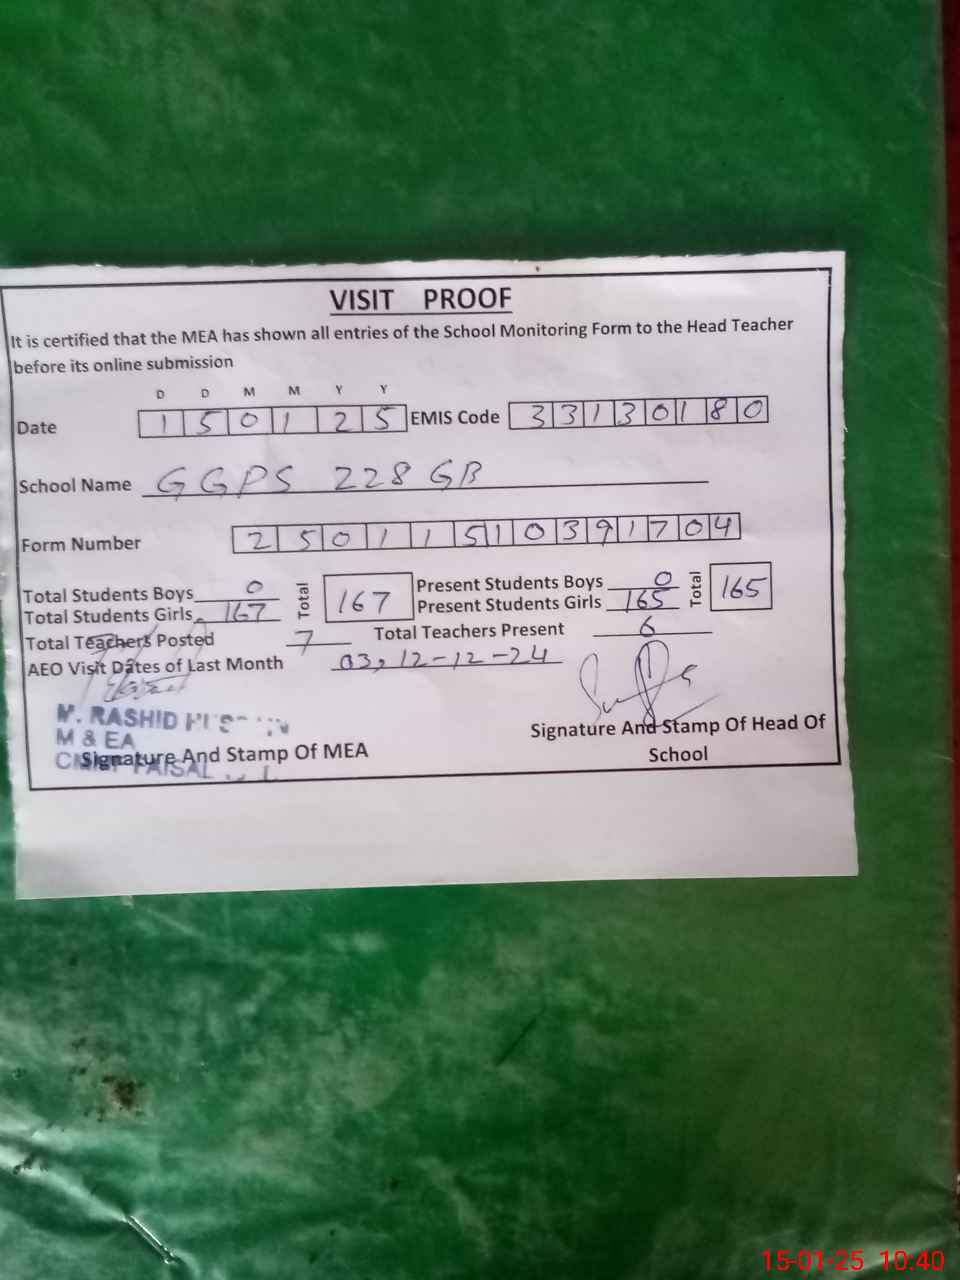 VISIT PROOF
It is certified that the MEA has shown all entries of the School Monitoring Form to the Head Teacher
before its online submission
D D M M Y Y
Date 1 5 0 1 2 5 EMIS Code 3 3 1 3 0 1 8 0
School Name GGPS 228 GB
Form Number 2 5 0 1 1 5 1 0 3 9 1 7 0 4
Total Students Boys 0 Total 167 Present Students Boys 0 Total 165
Total Students Girls 167 Present Students Girls 165
Total Teachers Posted 7 Total Teachers Present 6
AEO Visit Dates of Last Month 03, 12-12-24
M. RASHID
M & EA
Signature And Stamp Of MEA
FAISAL
Signature And Stamp Of Head Of
School
15-01-25 10:40